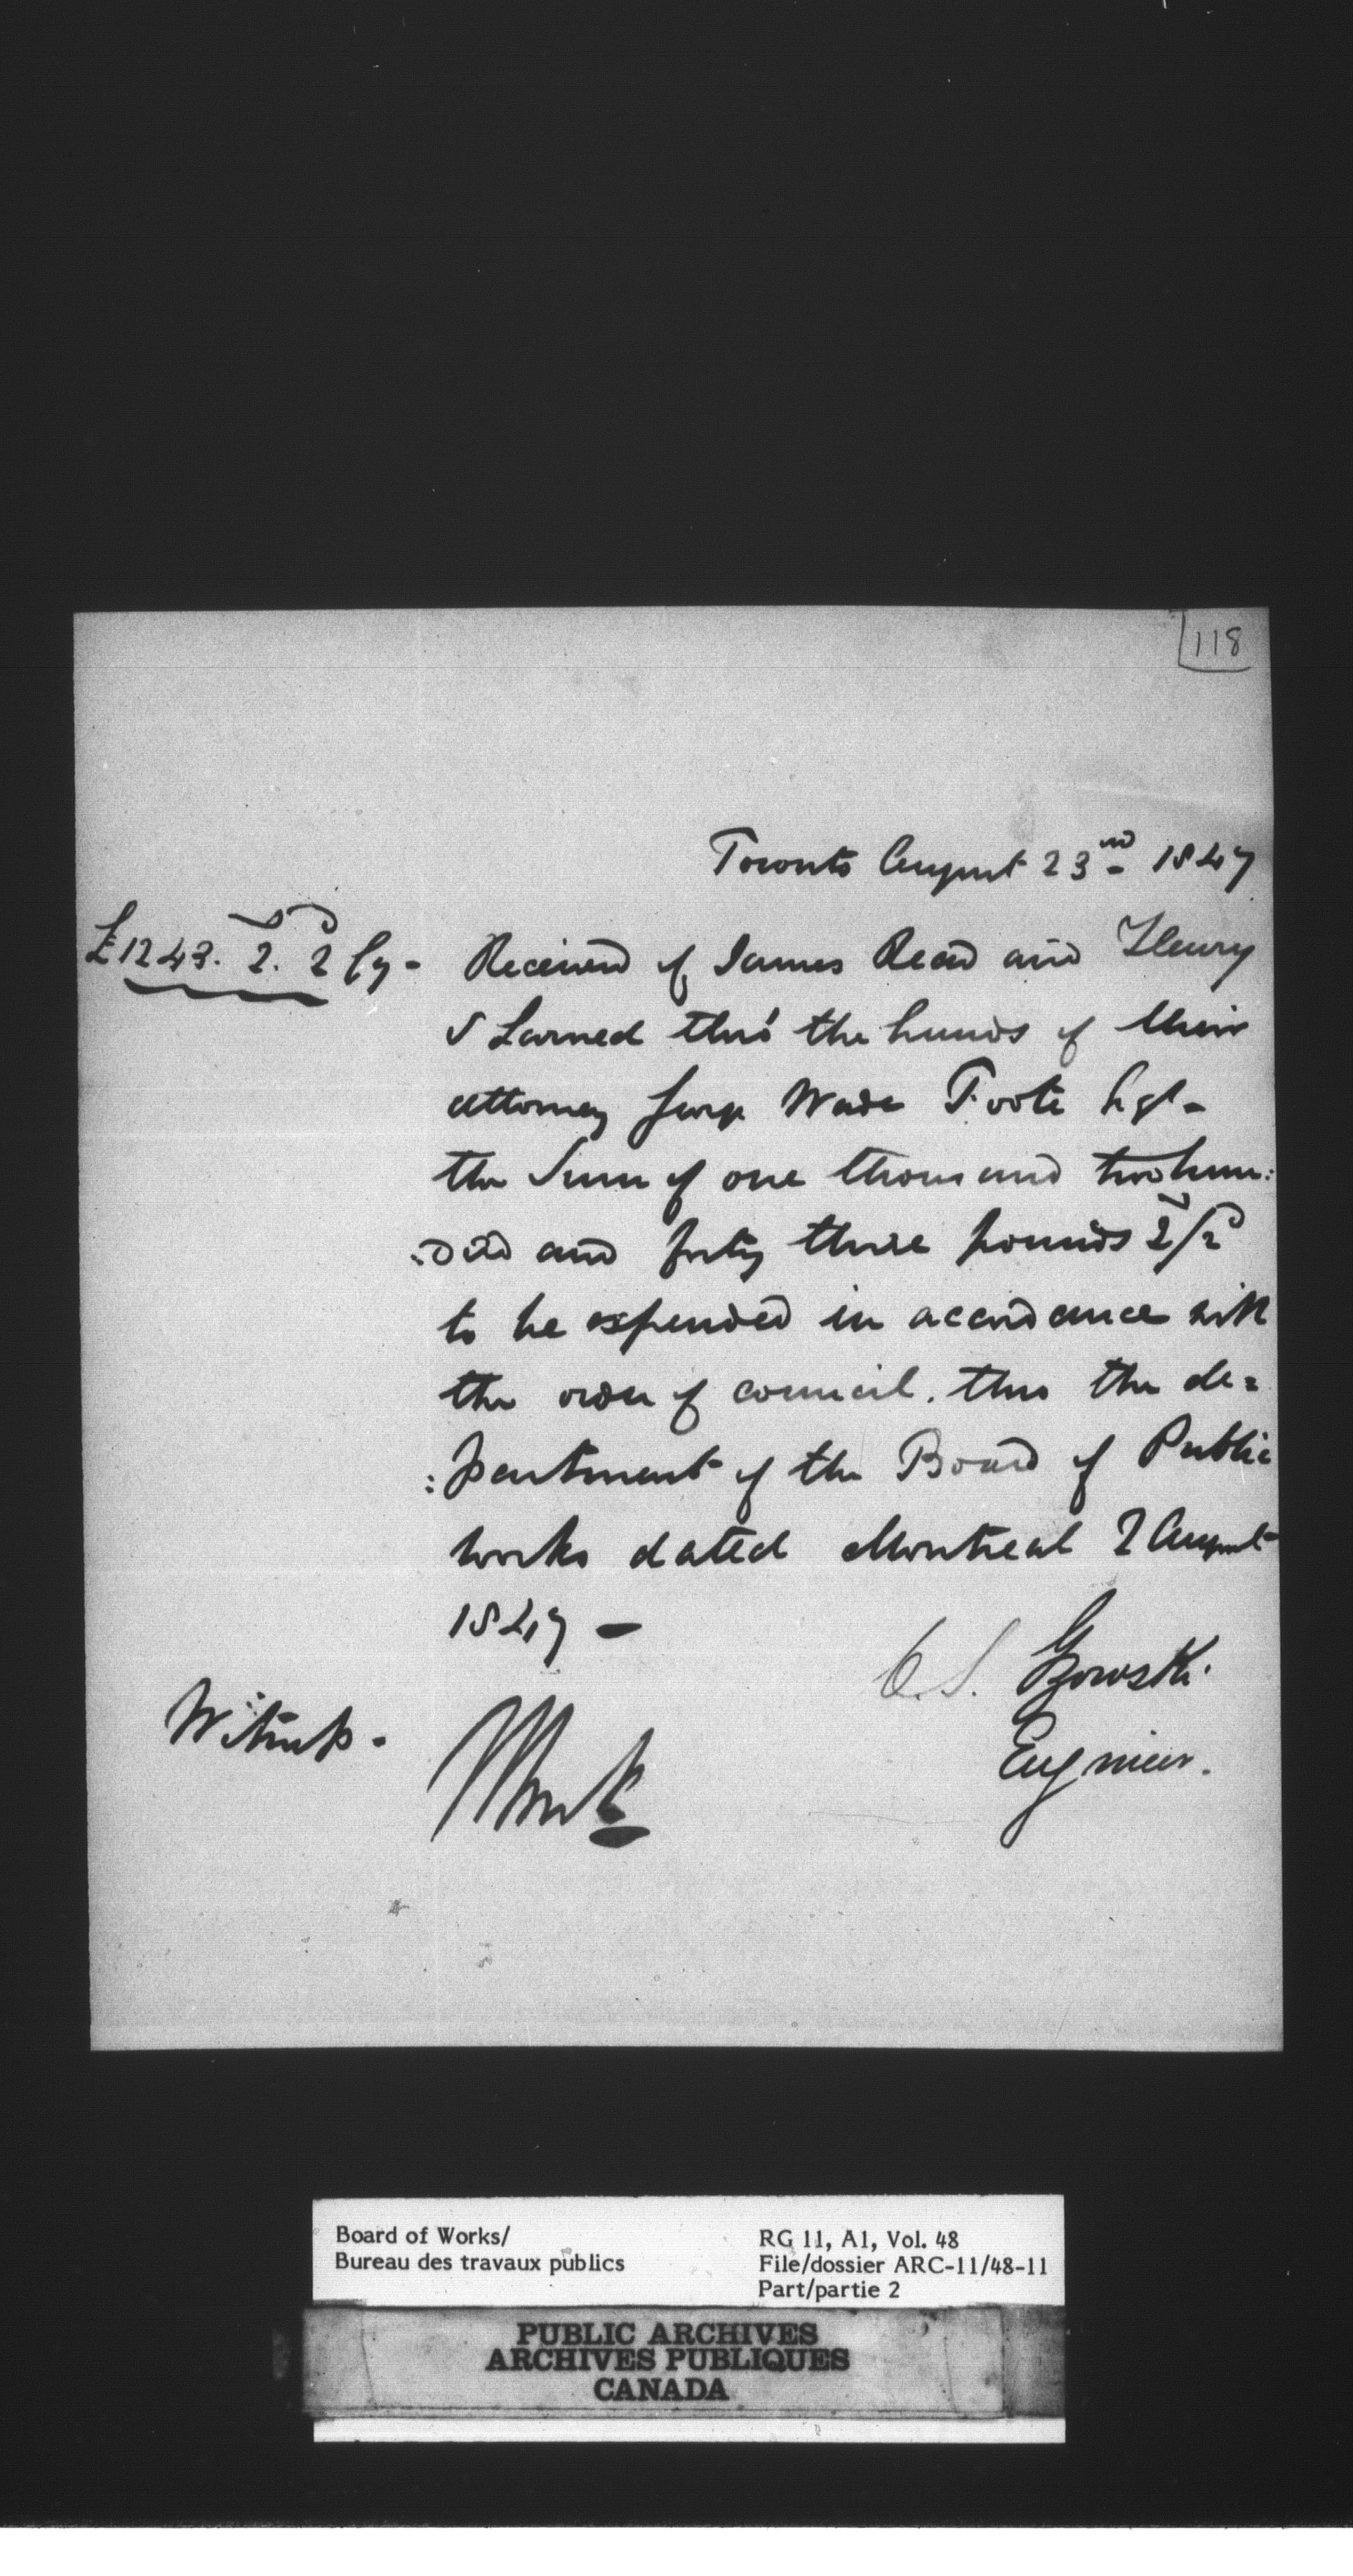 118
Toronto August 23rd 1847
£1243. 2. 2 Cy - Received of James Read and Henry
S Larned thro' the hands of their
attorney George Wade Foote Esqr -
the Sum of one thousand two hun:
:dred and forty three pounds 2/2
to be expended in accordance with
the order of council. thro the de=
:partment of the Board of Public
works dated Montreal 2 August
1847 -
C. S. Gzowski.
Engineer.
Witness -
Board of Works/
Bureau des travaux publics
RG 11, A1, Vol. 48
File/dossier ARC-11/48-11
Part/partie 2
PUBLIC ARCHIVES
ARCHIVES PUBLIQUES
CANADA